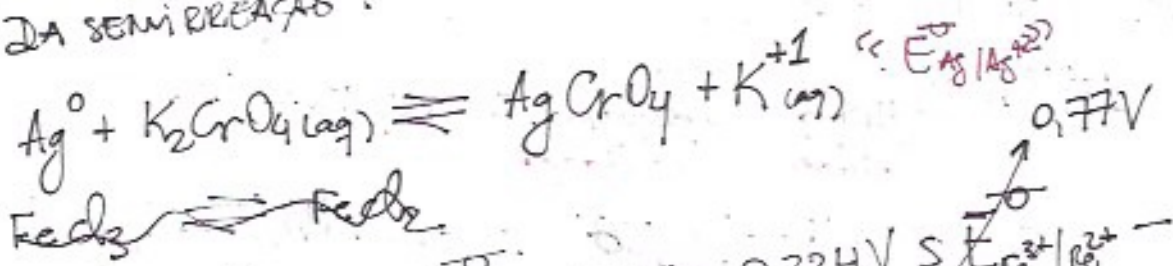 DA SEMIRREAÇÃO
Ag⁰ + K₂CrO₄(aq) ⇌ AgCrO₄ + K⁺¹(aq) << E⁻ᶱ Ag|Ag⁺² >>
0,77V
FeCl₃ ⇌ FeCl₂